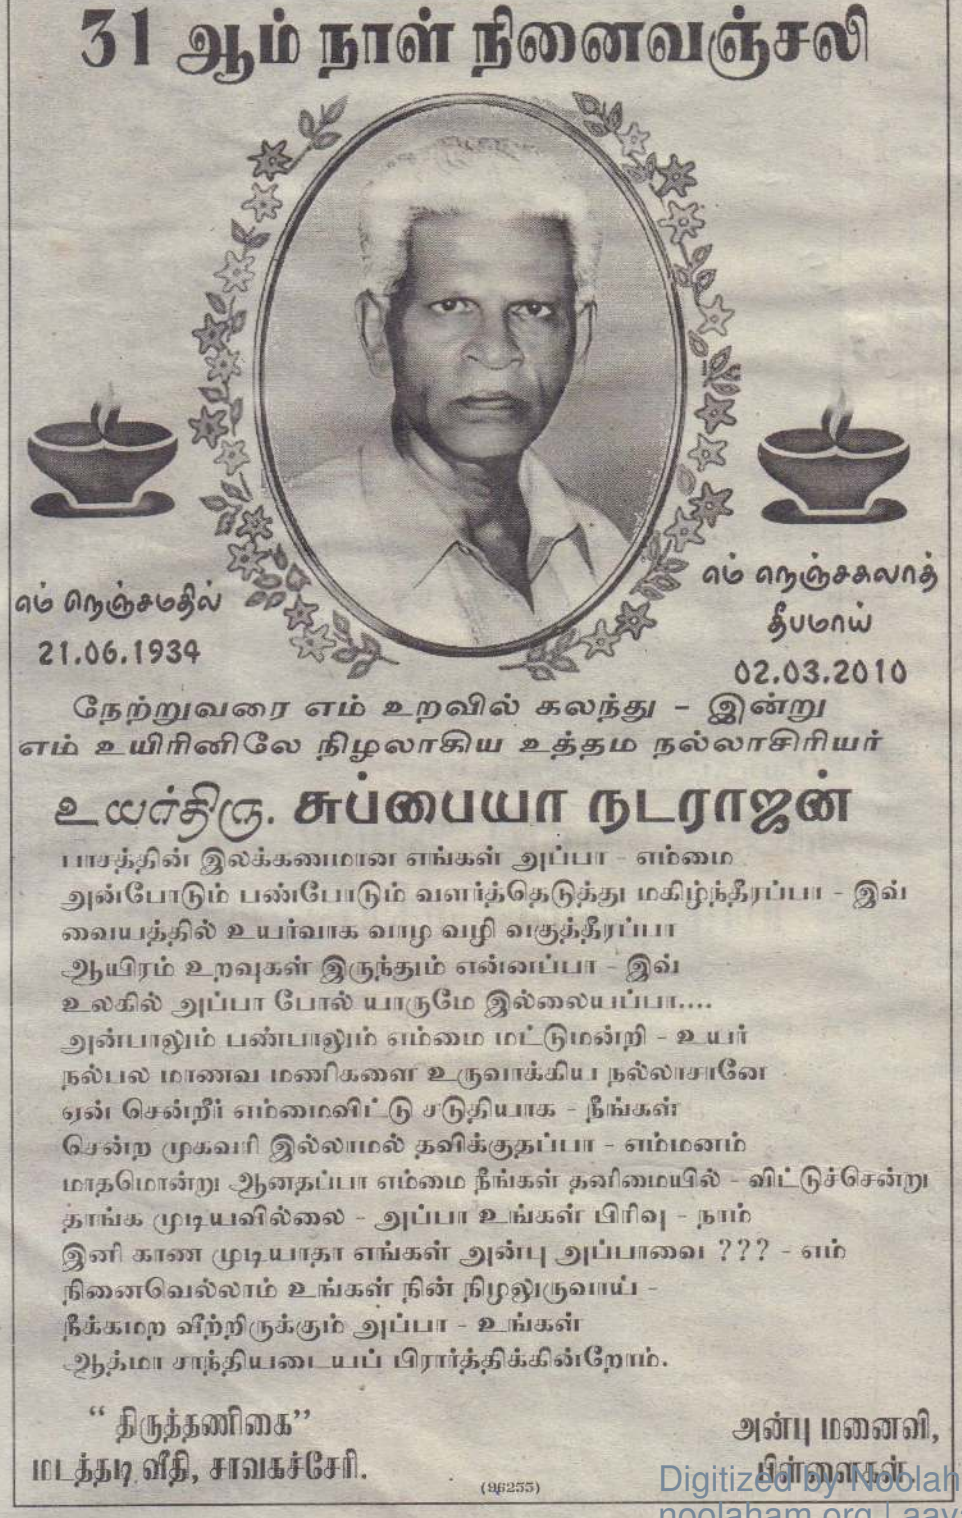 31 ஆம் நாள் நினைவஞ்சலி
எம் நெஞ்சமதில்
21.06.1934
எம் நெஞ்சகலாத்
தீபமாய்
02.03.2010
நேற்றுவரை எம் உறவில் கலந்து - இன்று
எம் உயிரினிலே நிழலாகிய உத்தம நல்லாசிரியர்
உயர்திரு. சுப்பையா நடராஜன்
பாசத்தின் இலக்கணமான எங்கள் அப்பா - எம்மை
அன்போடும் பண்போடும் வளர்த்தெடுத்து மகிழ்ந்தீரப்பா - இவ்
வையத்தில் உயர்வாக வாழ வழி வகுத்தீரப்பா
ஆயிரம் உறவுகள் இருந்தும் என்னப்பா - இவ்
உலகில் அப்பா போல் யாருமே இல்லையப்பா....
அன்பாலும் பண்பாலும் எம்மை மட்டுமன்றி - உயர்
நல்பல மாணவ மணிகளை உருவாக்கிய நல்லாசானே
ஏன் சென்றீர் எம்மைவிட்டு சடுதியாக - நீங்கள்
சென்ற முகவரி இல்லாமல் தவிக்குதப்பா - எம்மனம்
மாதமொன்று ஆனதப்பா எம்மை நீங்கள் தனிமையில் - விட்டுச்சென்று
தாங்க முடியவில்லை - அப்பா உங்கள் பிரிவு - நாம்
இனி காண முடியாதா எங்கள் அன்பு அப்பாவை ??? - எம்
நினைவெல்லாம் உங்கள் நின் நிழலுருவாய் -
நீக்கமற வீற்றிருக்கும் அப்பா - உங்கள்
ஆத்மா சாந்தியடையப் பிரார்த்திக்கின்றோம்.
“ திருத்தணிகை”
மடத்தடி வீதி, சாவகச்சேரி.
(96255)
அன்பு மனைவி,
பிள்ளைகள்.
Digitized by Noolah
noolaham.org | aava